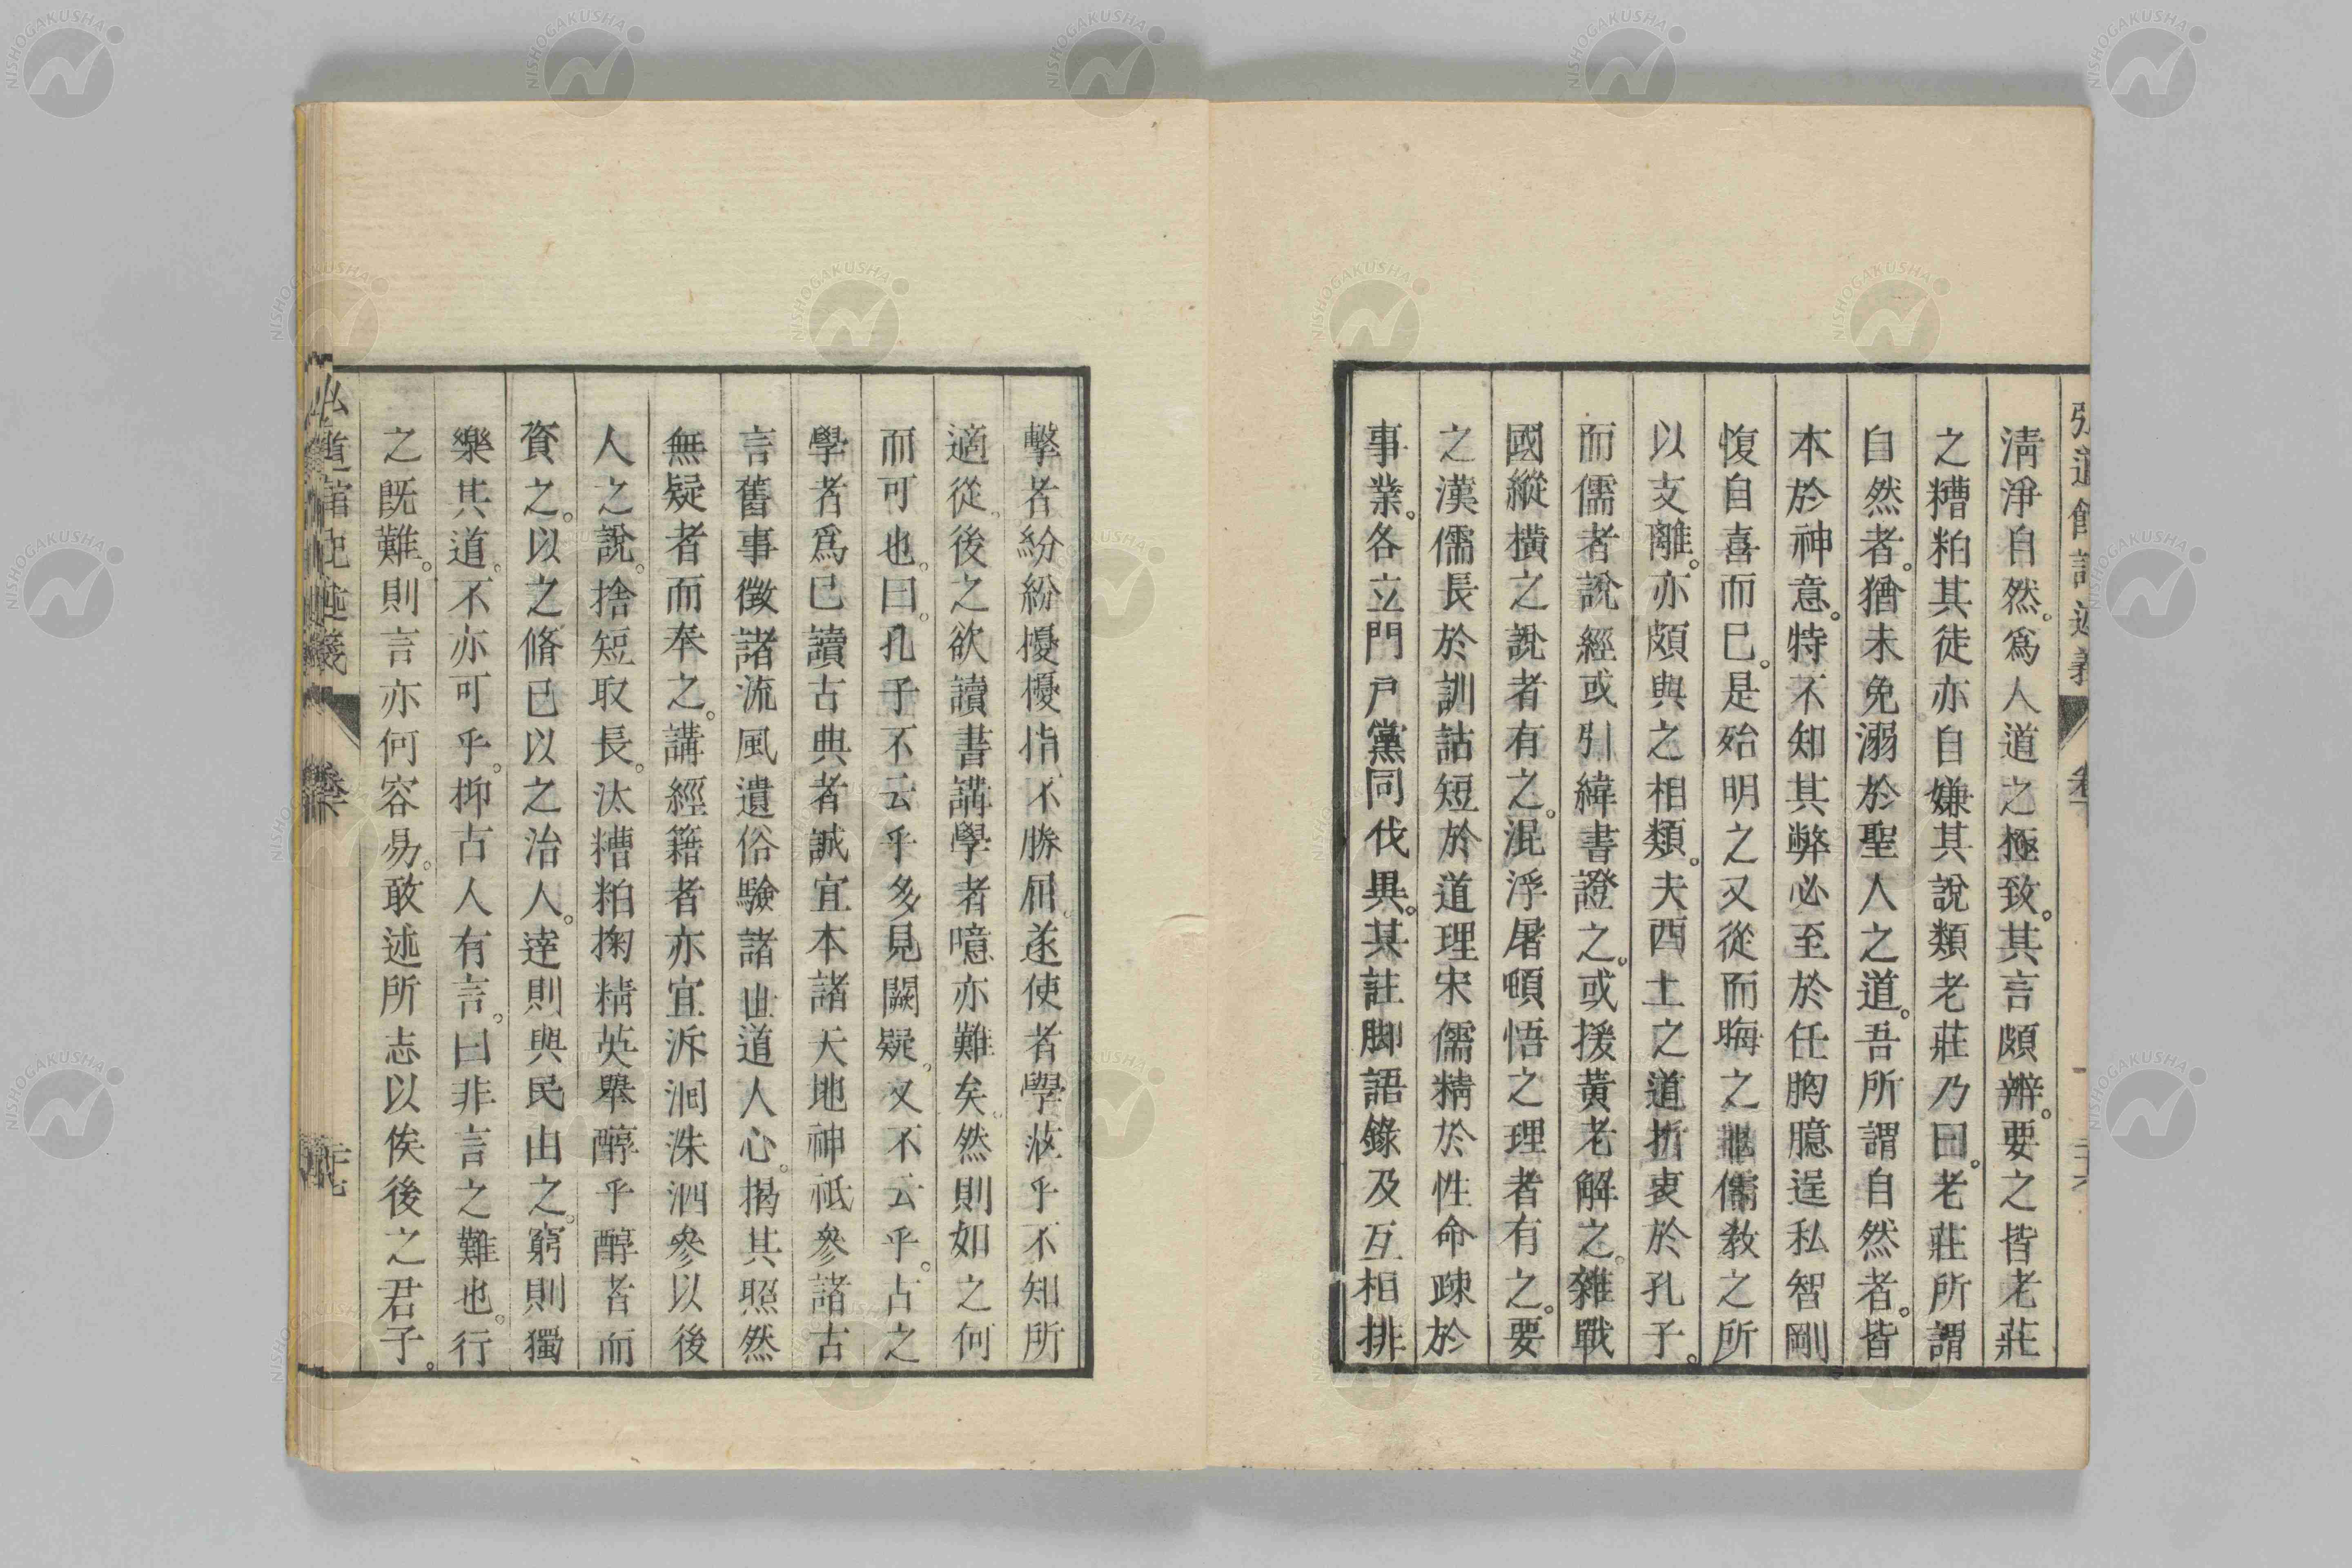 弘道館記述義
卷
二十六
清淨自然。爲人道之極致。其言頗辨。要之皆老莊
之糟粕其徒亦自嫌其說類老莊乃曰。老莊所謂
自然者。猶未免溺於聖人之道。吾所謂自然者。皆
本於神意。特不知其弊必至於任胸臆逞私智剛
愎自喜而已。是殆明之又從而晦之非儒敎之所
以支離。亦頗與之相類。夫西土之道折衷於孔子。
而儒者說經或引緯書證之。或援黃老解之。雜戰
國縱橫之說者有之。混浮屠頓悟之理者有之。要
之漢儒長於訓詁短於道理宋儒精於性命疎於
事業。各立門戶黨同伐異。某註脚語錄及互相排
擊者紛紛擾擾指不勝屈。遂使者學茫乎不知所
適從。後之欲讀書講學者噫亦難矣。然則如之何
而可也。曰。孔子不云乎多見闕疑。又不云乎。古之
學者爲己讀古典者誠宜本諸天地神祇參諸古
言舊事徵諸流風遺俗驗諸世道人心。揭其照然
無疑者而奉之。講經籍者亦宜泝洄洙泗參以後
人之說。捨短取長。汰糟粕掬精英擧醇乎醇者而
資之。以之脩己以之治人。達則與民由之。窮則獨
樂其道。不亦可乎。抑古人有言。曰非言之難也。行
之既難。則言亦何容易。敢述所志以俟後之君子。
弘道館記述義
卷
NISHOGAKUSHA